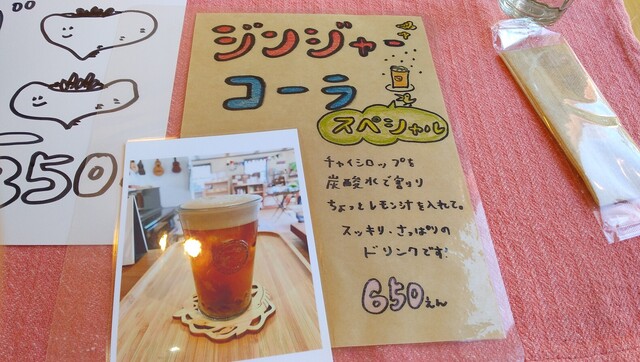 ジンジャー
コーラ
スペシャル
チャイシロップを
炭酸水で割り
ちょっとレモン汁を入れて。
スッキリ・さっぱりの
ドリンクです!
650えん
350